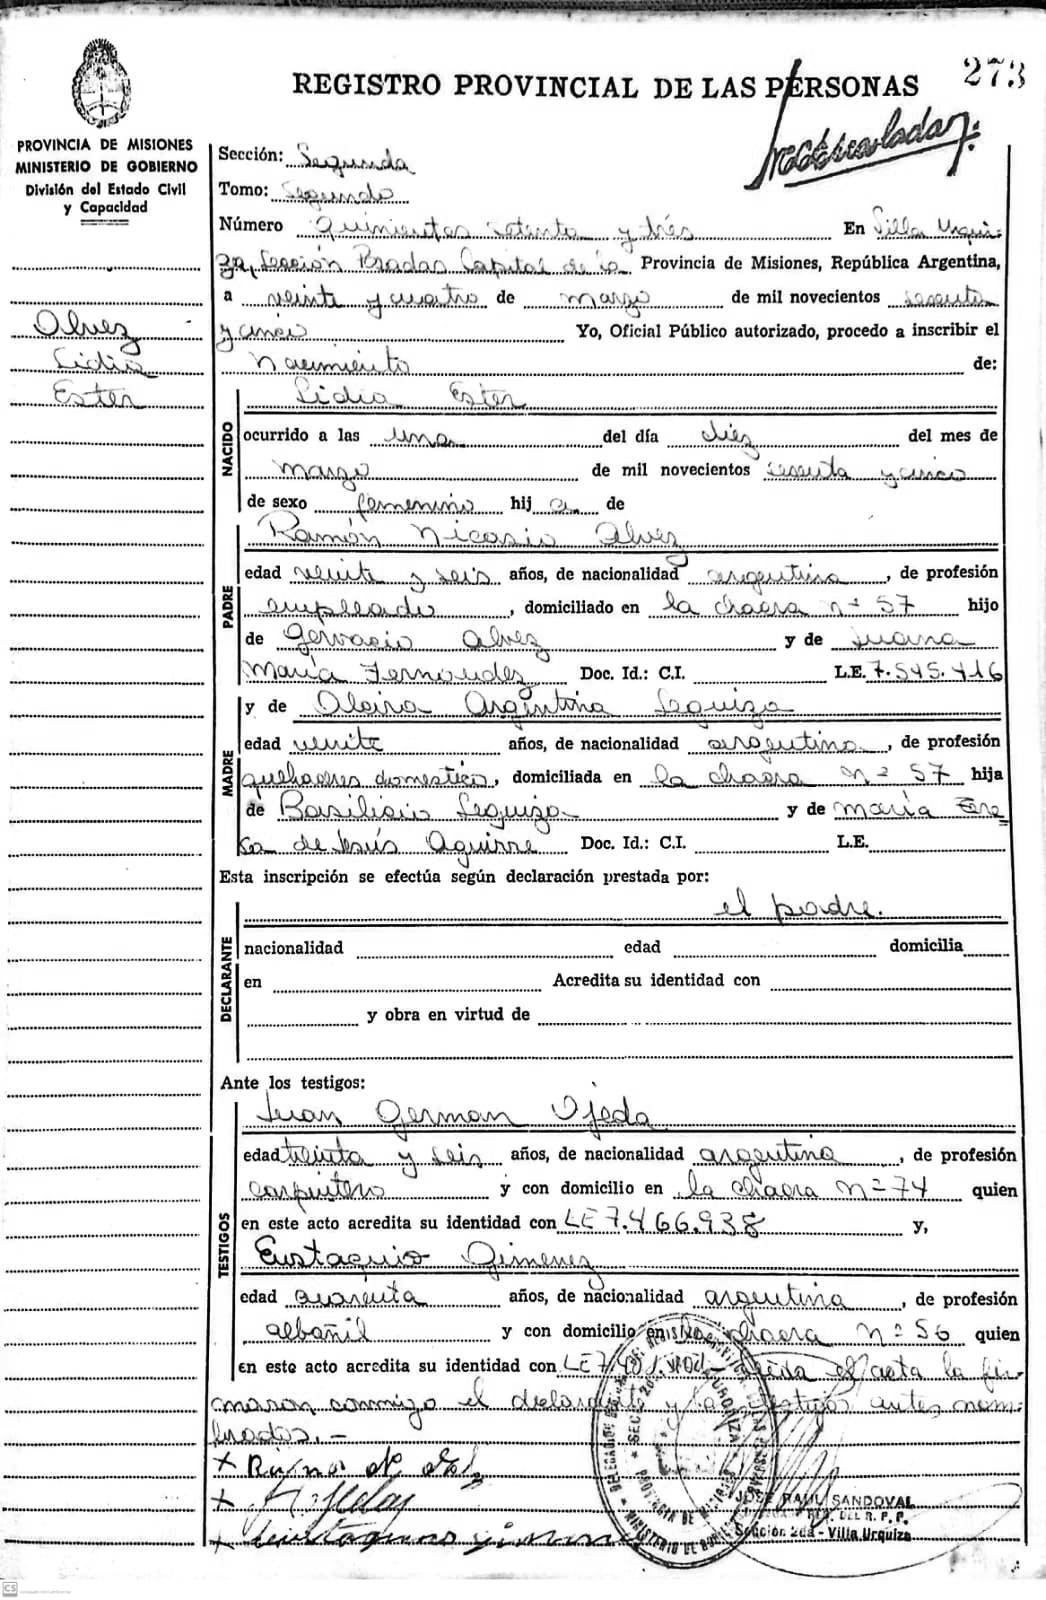 273
REGISTRO PROVINCIAL DE LAS PERSONAS
PROVINCIA DE MISIONES
MINISTERIO DE GOBIERNO
División del Estado Civil
y Capacidad
Alvez
Lidia
Ester
Sección: Segunda
Tomo: Segundo
Número Quinientos setenta y trés En Villa Urqui-
za, Sección Posadas Capital de la Provincia de Misiones, República Argentina,
a veinte y cuatro de marzo de mil novecientos sesenta
y cinco Yo, Oficial Público autorizado, procedo a inscribir el
Nacimiento de:
NACIDO
Lidia Ester
ocurrido a las una del día diez del mes de
marzo de mil novecientos sesenta y cinco
de sexo femenino hij a de
PADRE
Ramón Nicasio Alvez
edad veinte y seis años, de nacionalidad argentina, de profesión
empleado, domiciliado en la chacra nº 57 hijo
de Gervacio Alvez y de Juana
María Fernandez Doc. Id.: C.I. L.E. 7.545.416
MADRE
y de Argentina Leguiza
edad veinte años, de nacionalidad argentina, de profesión
quehaceres domestico, domiciliada en la chacra nº 57 hija
de Basilicio Leguiza y de María
de Jesús Aguirre Doc. Id.: C.I. L.E.
Esta inscripción se efectúa según declaración prestada por:
DECLARANTE
el padre.
nacionalidad edad domicilia
en Acredita su identidad con
y obra en virtud de
Ante los testigos:
TESTIGOS
Juan German Ojeda
edad treinta y seis años, de nacionalidad argentina, de profesión
carpintero y con domicilio en la chacra nº 74 quien
en este acto acredita su identidad con LE 7.466.938 y,
Eustaquio Gimenez
edad cuarenta años, de nacionalidad argentina, de profesión
albañil y con domicilio en la chacra nº 56 quien
en este acto acredita su identidad con LE el acta la fir-
maron conmigo el declarante y los testigos antes nom-
brados.-
JOSE RAUL SANDOVAL
DEL R. P. P.
Sección 2da - Villa Urquiza
CS